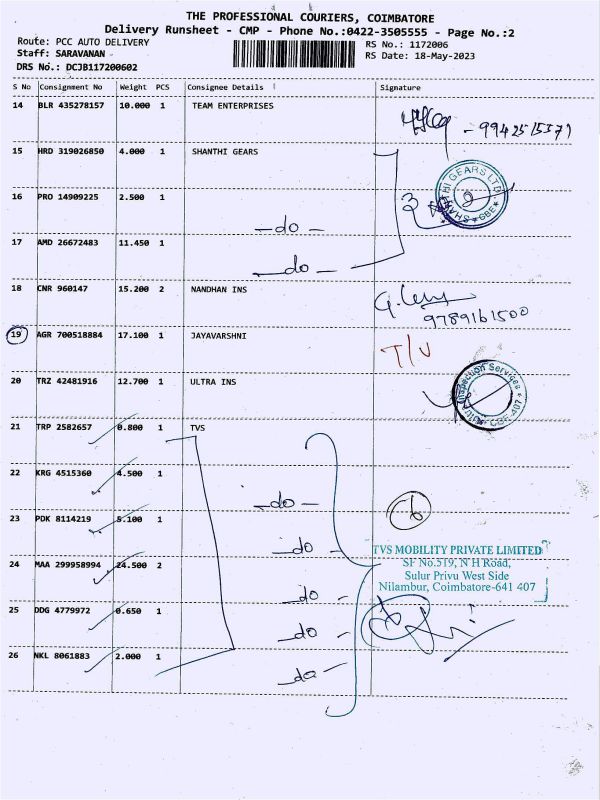 THE PROFESSIONAL COURIERS, COIMBATORE
Delivery Runsheet - CMP - Phone No.:0422-3505555 - Page No.:2
Route: PCC AUTO DELIVERY
RS No.: 1172006
Staff: SARAVANAN
RS Date: 18-May-2023
DRS No.: DCJB117200602
S No Consignment No Weight PCS Consignee Details Signature
14 BLR 435278157 10.000 1 TEAM ENTERPRISES
- 9942515371
15 HRD 319026850 4.000 1 SHANTHI GEARS
SHANTHI GEARS LTD * CBE *
16 PRO 14909225 2.500 1
3
-do-
17 AMD 26672483 11.450 1
-do-
18 CNR 960147 15.200 2 NANDHAN INS
9789161500
19 AGR 700518884 17.100 1 JAYAVARSHNI
T/U
20 TRZ 42481916 12.700 1 ULTRA INS
Inspection Services CBE-407
21 TRP 2582657 0.800 1 TVS
22 KRG 4515360 4.500 1
-do-
6
23 PDK 8114219 5.100 1
-do-
TVS MOBILITY PRIVATE LIMITED
24 MAA 299958994 24.500 2
SF No.519, N H Road,
Sulur Privu West Side
Nilambur, Coimbatore-641 407
-do-
25 DDG 4779972 0.650 1
-do-
26 NKL 8061883 2.000 1
-do-